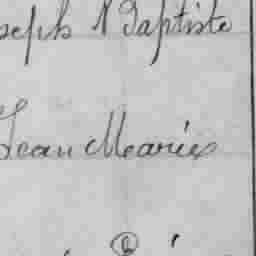 seph Baptiste
Jean Marie